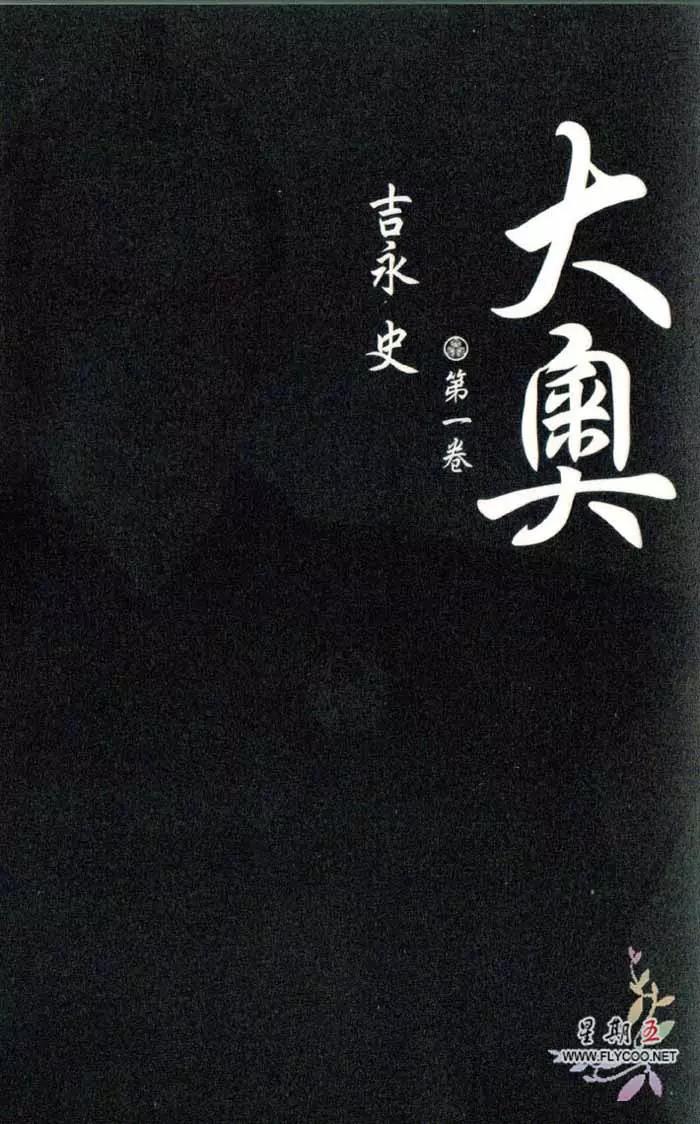 大奥
第一卷
吉永史
星期五
WWW.FLYCOO.NET